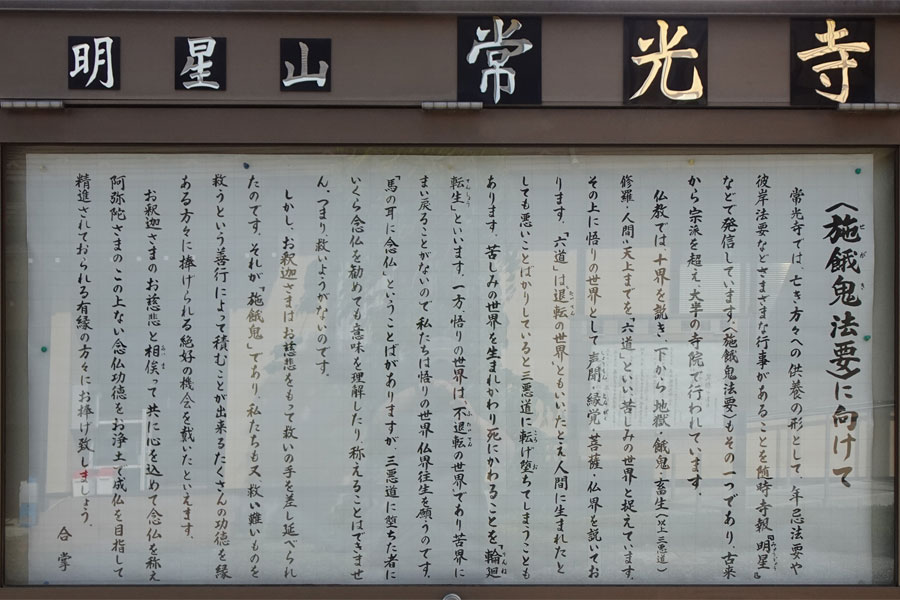 明星山 常光寺
〈施餓鬼法要〉に向けて
常光寺では、亡き方々への供養の形として、年忌法要や
彼岸法要などさまざまな行事があることを随時寺報『明星』
などで発信しています。〈施餓鬼法要〉もその一つであり、古来
から宗派を超え、大半の寺院で行われています。
仏教では十界を説き、下から地獄・餓鬼・畜生(以上三悪道)
修羅・人間・天上までを、「六道」といい苦しみの世界と捉えています。
その上に悟りの世界として声聞・縁覚・菩薩・仏界を説いてお
ります。「六道」は退転の世界、ともいい、たとえ人間に生まれたと
しても悪いことばかりしていると三悪道に転げ堕ちてしまうことも
あります。苦しみの世界を生まれかわり死にかわることを、輪廻
転生」といいます。一方、悟りの世界は、不退転の世界、であり苦界に
まい戻ることがないので私たちは悟りの世界仏界往生を願うのです。
「馬の耳に念仏」ということばがありますが、三悪道に堕ちた者に
いくら念仏を勧めても意味を理解したり、称えることはできませ
ん。つまり救いようがないのです。
しかし、お釈迦さまはお慈悲をもって救いの手を差し延べられ
たのです。それが「施餓鬼」であり、私たちも又救い難いものを
救うという善行によって積むことが出来るたくさんの功徳を縁
ある方々に捧げられる絶好の機会を戴いたといえます。
お釈迦さまのお慈悲と相俟って共に心を込めて念仏を称え
阿弥陀さまのこの上ない念仏功徳をお浄土で成仏を目指して
精進されておられる有縁の方々にお捧げ致しましょう。
合掌